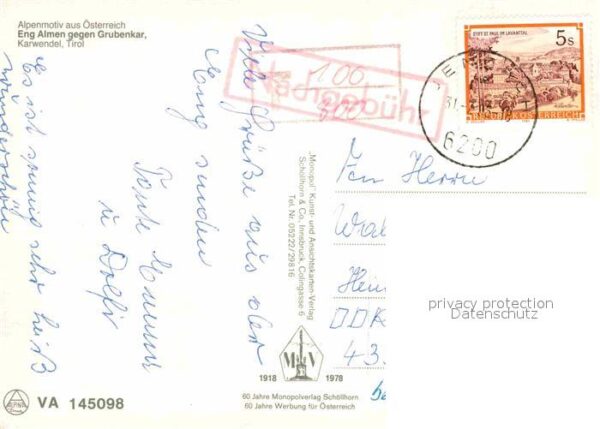 Alpenmotiv aus Österreich
Eng Almen gegen Grubenkar,
Karwendel, Tirol
STIFT ST. PAUL IM LAVANTTAL
5s
REPUBLIK ÖSTERREICH
JENBACH
6200
Nachgebühr
100
300
Viele Grüße aus der
Eng senden
Tante
u Dolfi
Es ist sehr heiß
wunderschön
"Monopol" Kunst- und Ansichtskarten-Verlag
Schöllhorn & Co. Innsbruck, Colingasse 6
Tel. Nr. 05222/29816
1918 MV 1978
60 Jahre Monopolverlag Schöllhorn
60 Jahre Werbung für Österreich
An Herrn
Hein
DDR
43
VA 145098
privacy protection
Datenschutz